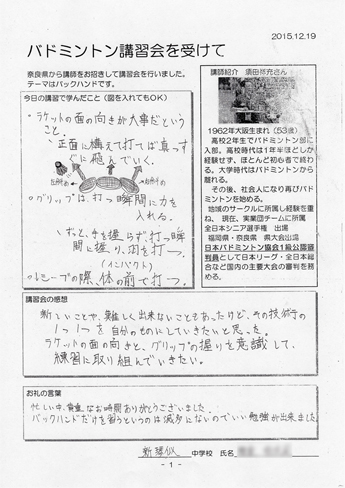 2015.12.19
バドミントン講習会を受けて
奈良県から講師をお招きして講習会を行いました。
テーマはバックハンドです。
今日の講習で学んだこと（図を入れてもOK）
・ラケットの面の向きが大事だという
こと。
正面に構えて打てば真っす
ぐに飛んでいく。
・グリップは、打つ瞬間に力を
入れる。
ずっと、手を握らず、打つ瞬
間に握り、肉を打つ。
(インパクト)
の際、体の前で打つ。
講師紹介
1962年大阪生まれ（53歳）
高校2年生でバドミントン部に
入部。高校時代は1年半ほどしか
経験せず、ほとんど初心者で終わ
る。大学時代はバドミントンから
離れる。
その後、社会人になり再びバド
ミントンを始める。
地域のサークルに所属し経験を重
ね、現在、実業団チームに所属
全日本シニア選手権　出場
福岡県・奈良県　県大会出場
日本バドミントン協会1級公認審
判員として日本リーグ・全日本総
合など国内の主要大会の審判を務
める。
講習会の感想
新しいことや、難しく出来ないこともあったけど、その技術の
1つ1つを自分のものにしていきたいと思った。
ラケットの面の向きと、グリップの握りを意識して、
練習に取り組んでいきたい。
お礼の言葉
忙しい中、貴重なお時間ありがとうございました。
バックハンドだけを習うというのは滅多にないのでいい勉強が出来ました。
中学校　氏名
- 1 -